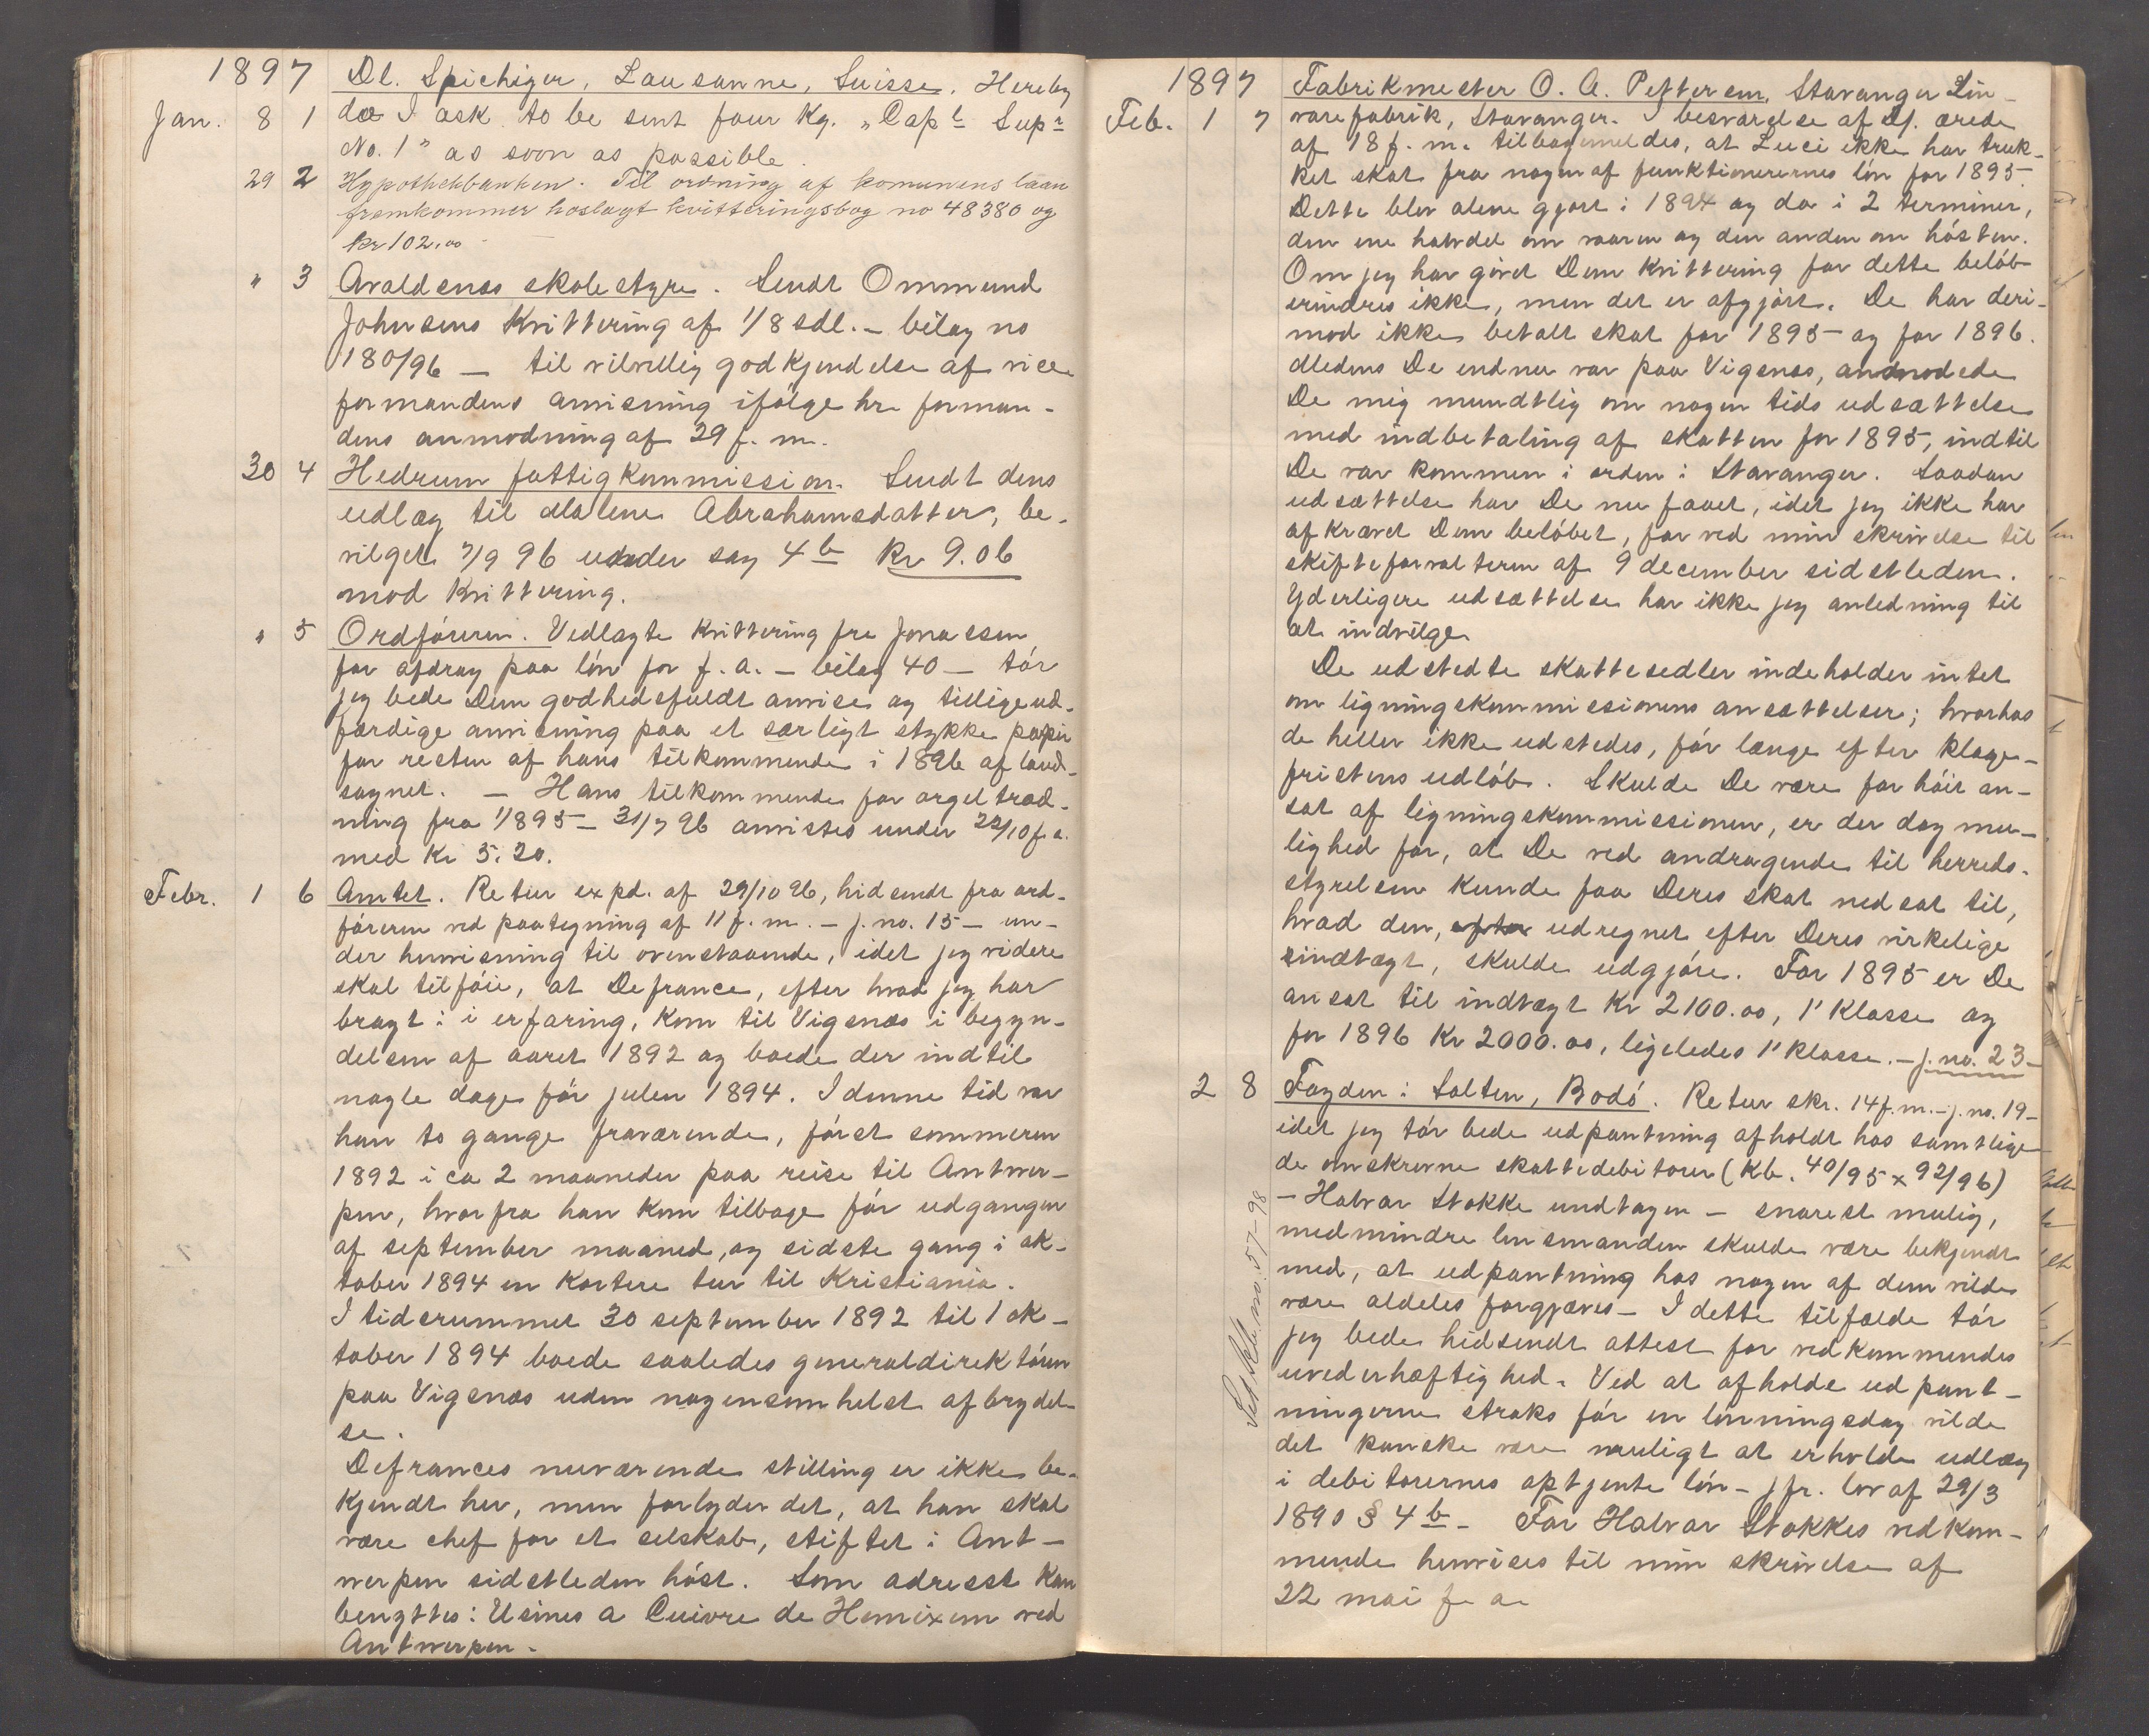 1897 Dl. Spichiger, Lausanne, Suisse. Hereby
Jan. 8 1 do I ask to be sent four Kg. „Capt Supr
No. 1" as soon as possible.
29 2 Hypothekbanken. Til ordning af komunens laan
fremkommer hoslagt kvitteringsbog no 48380 og
kr 102.00
" 3 Avaldsnes skolestyre. Sendt Ommund
Johnsens kvittering af 1/8 sdl. – bilag no
180/96 – til velvillig godkjendelse af vice
formandens anvisning ifölge hr. forman-
dens anmodning af 29 f. m.
30 4 Hedrum fattigkommission. Sendt dens
udlæg til Malene Abrahamsdatter, be-
vilget 7/9 96 under sag 4 b Kr 9.06
mod kvittering.
" 5 Ordföreren. Vedlagte kvittering fra Jonassen
for afdrag paa lön for f. a. – bilag 40 – tör
jeg bede Dem godhedsfuldt anvise og tillige ud-
færdige anvisning paa et særligt stykke papir
for resten af hans tilkommende i 1896 af land-
sognet. – Hans tilkommende for orgeltræd-
ning fra 1/8 95 – 31/7 96 anvistes under 22/10 f. a.
med Kr 5.20.
Febr. 1 6 Amtet. Retur expd. af 29/10 96, hidsendt fra ord-
föreren ved paategning af 11 f. m. – j. no. 15 – un-
der henvisning til ovenstaaende, idet jeg videre
skal tilföie, at Defrance, efter hvad jeg har
bragt i erfaring, kom til Vigsnæs i begyn-
delsen af aaret 1892 og boede der indtil
nogle dage för julen 1894. I denne tid var
han to gange fraværende, först sommeren
1892 i ca 2 maaneder paa reise til Antwer-
pen, hvorfra han kom tilbage för udgangen
af september maaned, og sidste gang i ok-
tober 1894 en kortere tur til Kristiania.
I tidsrummet 30 september 1892 til 1 ok-
tober 1894 boede saaledes generaldirektören
paa Vigsnæs uden nogensomhelst afbrydel-
se.
Defrances nuværende stilling er ikke be-
kjendt her, men forlyder det, at han skal
være chef for et selskab, stiftet i Ant-
werpen sidstleden höst. Som adresse kan
benyttes: Usines a Cuivre de Hemixem ved
Antwerpen.
1897 Fabrikmester O. A. Pettersen, Stavanger Lin-
Feb. 1 7 varefabrik, Stavanger. I besvarelse af Dj. ærede
af 18 f. m. tilbagemeldes, at Luci ikke har truk-
ket skat fra nogen af funktionærernes lön for 1895.
Dette blev alene gjort i 1894 og da i 2 terminer,
den ene halvdel om vaaren og den anden om hösten.
Om jeg har givet Dem kvittering for dette belöb
erindres ikke, men det er afgjort. De har deri-
mod ikke betalt skat for 1895 og for 1896.
Medens De endnu var paa Vigsnæs, anmodede
De mig mundtlig om nogen tids udsættelse
med indbetaling af skatten for 1895, indtil
De var kommen i orden i Stavanger. Saadan
udsættelse har De nu faaet, idet jeg ikke har
afkrævet Dem belöbet, för ved min skrivelse til
skifteforvalteren af 9 december sidstleden.
Yderligere udsættelse har ikke jeg anledning til
at indvilge.
De udstedte skattesedler indeholder intet
om ligningskommissionens ansættelser; hvorhos
de heller ikke udstedes, för længe efter klage-
fristens udlöb. Skulde De være for höit an-
sat af ligningskommissionen, er der dog mu-
lighed for, at De ved andragende til herreds-
styrelsen kunde faa Deres skat nedsat til,
hvad den, efter udregnet efter Deres virkelige
indtægt, skulde udgjöre. For 1895 er De
ansat til indtægt Kr 2100.00, 1' klasse og
for 1896 Kr 2000.00, ligeledes 1' klasse. – j. no. 23 –
2 8 Fogden i Salten, Bodö. Retur skr. 14 f. m. – j. no. 19 –
idet jeg tör bede udpantning afholdt hos samtlige
de omskrevne skattedebitorer (Kb. 40/95 x 92/96)
– Halvar Stokke undtagen – snarest mulig,
medmindre lensmanden skulde være bekjendt
med, at udpantning hos nogen af dem vilde
være aldeles forgjæves – I dette tilfælde tör
jeg bede hidsendt attest for vedkommendes
uvederhæftighed. Ved at afholde udpant-
ningerne straks för en lönningsdag vilde
det kanske være muligt at erholde udlæg
i debitorernes optjente lön – jfr. lov af 29/3
1890 § 4 b – For Halvar Stokkes vedkom-
mende henvises til min skrivelse af
22 mai f. a.
no. 57-98